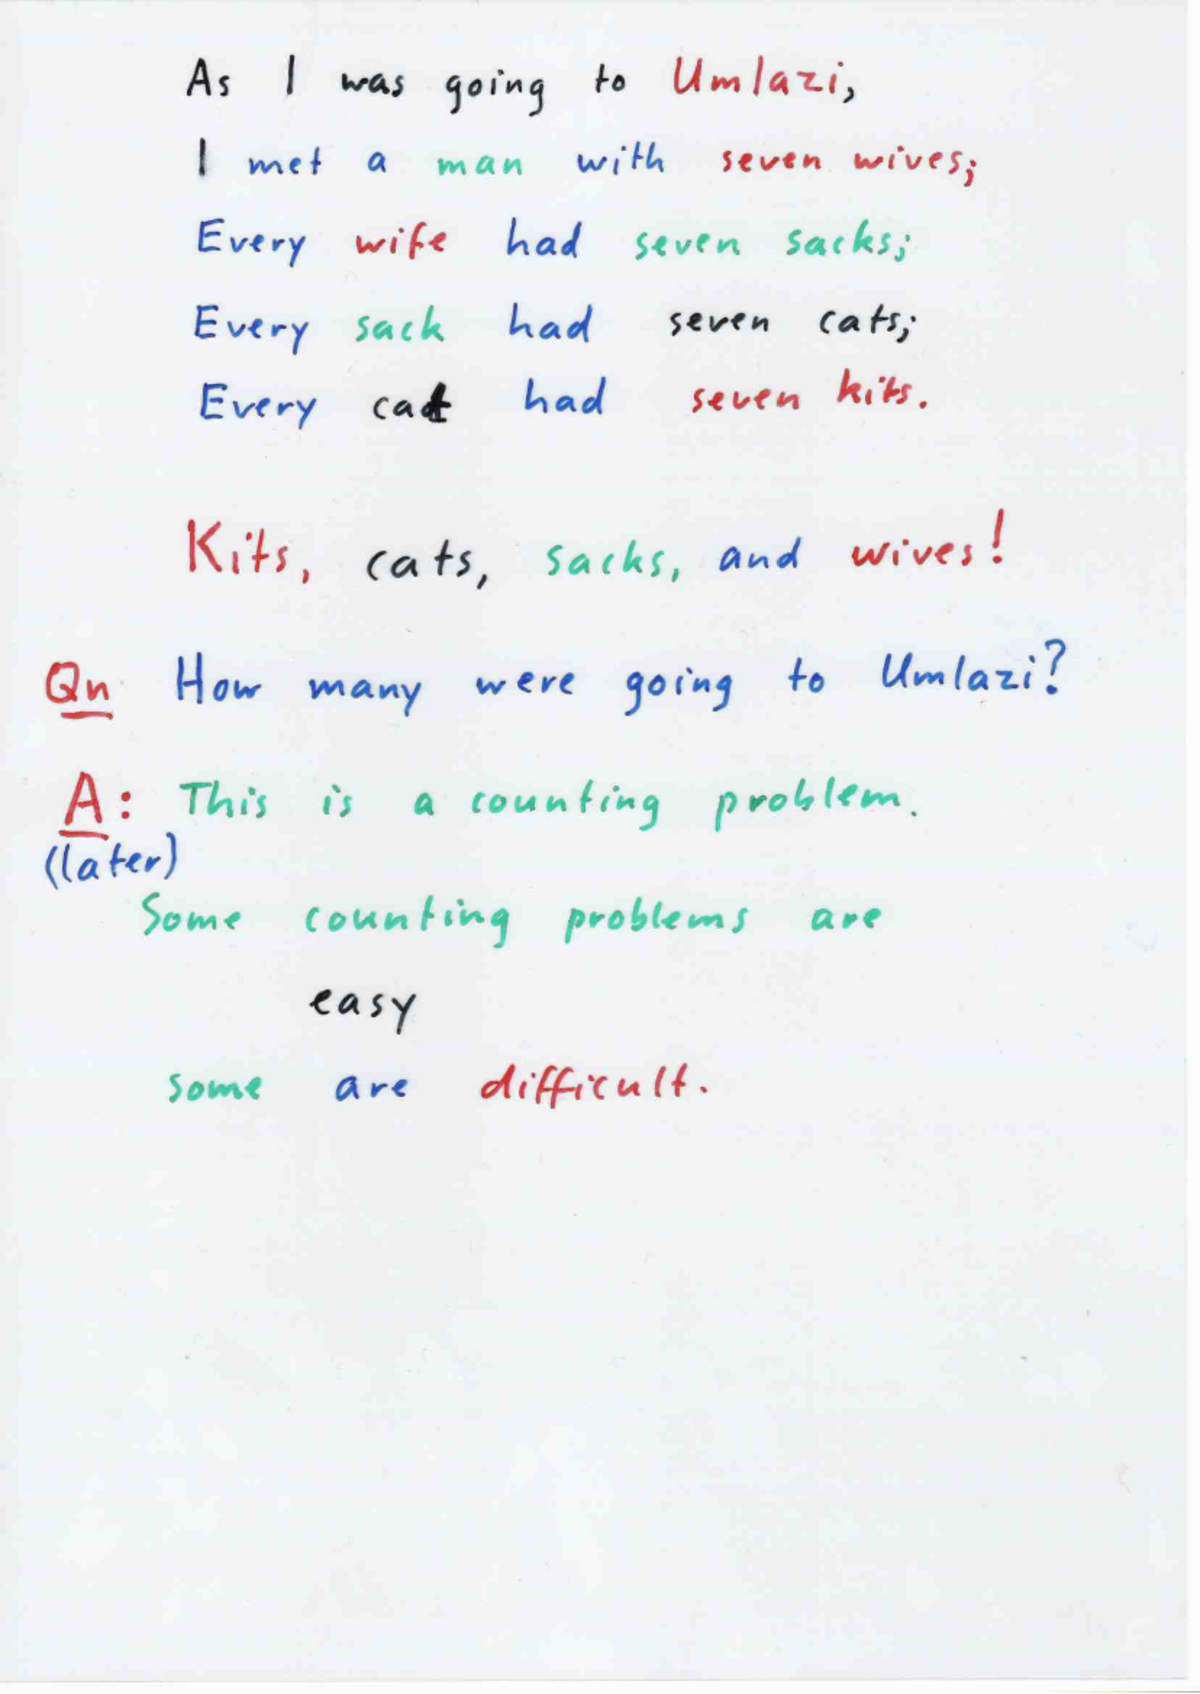 As I was going to Umlazi,
I met a man with seven wives;
Every wife had seven sacks;
Every sack had seven cats;
Every cat had seven kits.
Kits, cats, sacks, and wives!
Qn How many were going to Umlazi?
A: This is a counting problem.
(later)
Some counting problems are
easy
some are difficult.